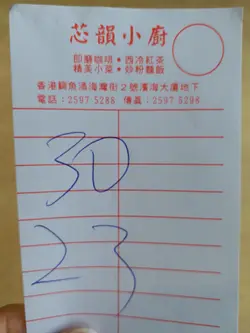 芯韻小廚
即磨咖啡•西冷紅茶
精美小菜•炒粉麵飯
香港鰂魚涌海灣街2號濱海大廈地下
電話：2597 5288 傳真：2597 5298
30
23